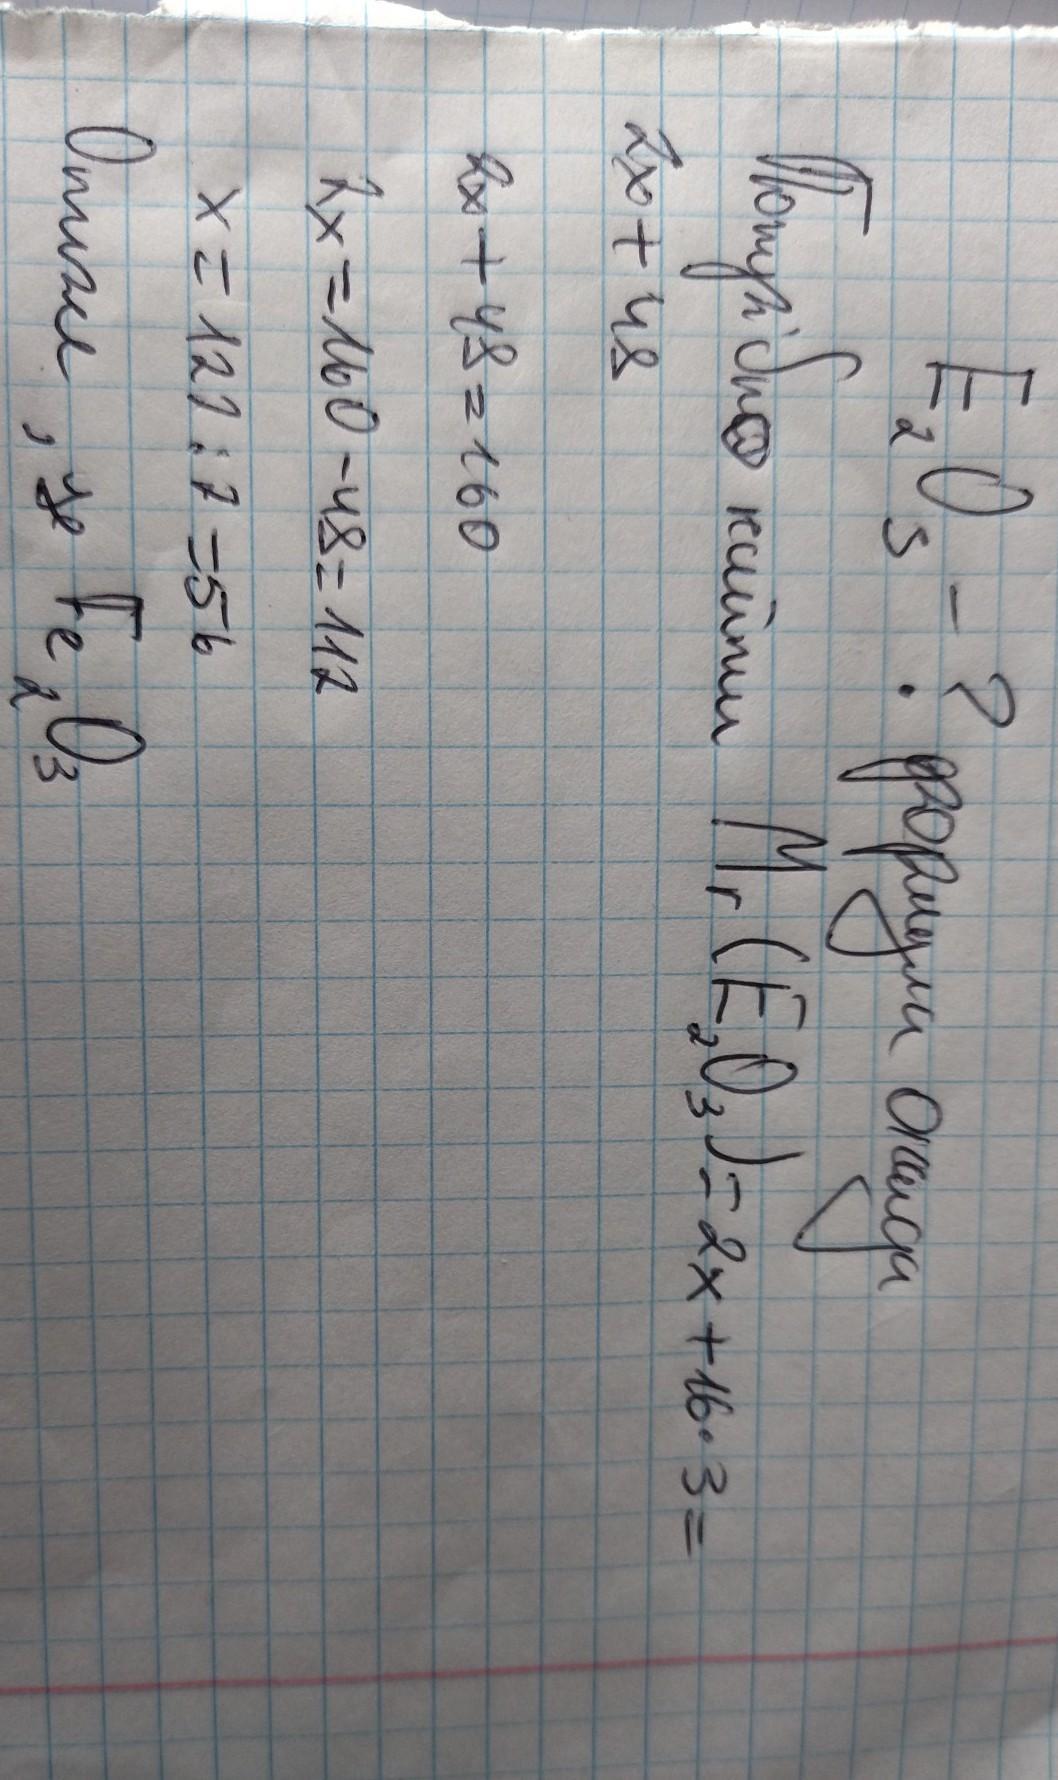 E₂O₃ - ? формули оксиди
Потрібно найти Mr (E₂O₃) = 2x + 16·3 =
2x + 48
2x + 48 = 160
2x = 160 - 48 = 112
x = 122 : 2 = 56
Отже, це Fe₂O₃